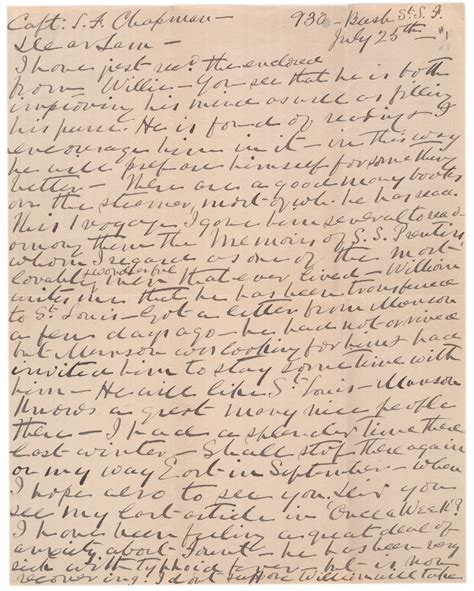 Capt: S. F. Chapman— 930-Bush St. S. F.
July 25th—
Dear Sam—
I have just recd. the enclosed
from Willie— You see that he is both
improving his mind as well as filling
his purse. He is fond of reading & I
encourage him in it— in this way
he will prepare himself for something
better— There are a good many books
on the steamer, most of wh. he has read.
This voyage I gave him several to read
among them the Memoirs of S. S. Prentiss
whom I regard as one of the most
lovable & wonderful men that ever lived— William
writes me that he has been transferred
to St. Louis— Got a letter from Munson
a few days ago— he had not arrived
but Munson was looking for him & had
invited him to stay some time with
him— He will like St. Louis— Munson
Knows a great many nice people
there— I had a splendid time there
last winter— Shall stop there again
on my way East in September— when
I hope also to see you. Did you
see my last article in 'Once a Week'?
I have been feeling a great deal of
anxiety about he has been very
sick with typhoid fever— but is now
recovering. I don't suppose William will take